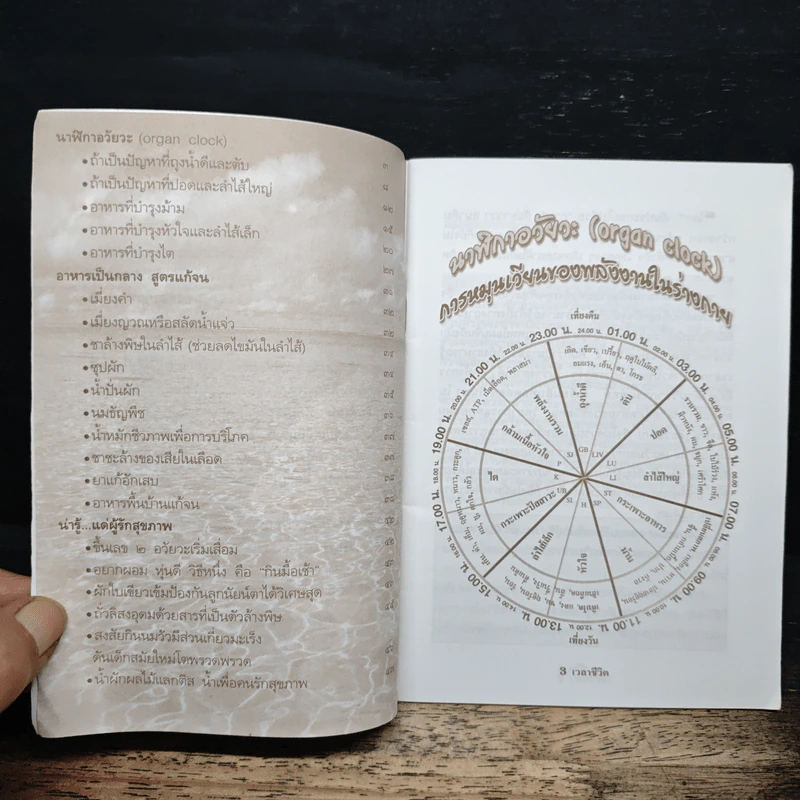 นาฬิกาอวัยวะ (organ clock)
•ถ้าเป็นปัญหาที่ถุงน้ำดีและตับ ๓
•ถ้าเป็นปัญหาที่ปอดและลำไส้ใหญ่ ๘
•อาหารที่บำรุงม้าม ๑๒
•อาหารที่บำรุงหัวใจและลำไส้เล็ก ๑๕
•อาหารที่บำรุงไต ๒๐
อาหารเป็นกลาง สูตรแก้จน ๒๗
•เมี่ยงคำ ๓๑
•เมี่ยงญวณหรือสลัดน้ำแจ่ว ๓๒
•ชาล้างพิษในลำไส้ (ช่วยลดไขมันในลำไส้) ๓๔
•ซุปผัก ๓๔
•น้ำปั่นผัก ๓๕
•นมธัญพืช
•น้ำหมักชีวภาพเพื่อการบริโภค ๓๗
•ชาชะล้างของเสียในเลือด ๓๗
•ยาแก้อักเสบ ๓๘
•อาหารพื้นบ้านแก้จน ๓๘
น่ารู้...แด่ผู้รักสุขภาพ
•ขึ้นเลข ๒ อวัยวะเริ่มเสื่อม
•อยากผอม หุ่นดี วิธีหนึ่ง คือ “กินมื้อเช้า”
•ผักใบเขียวเข้มป้องกันลูกนัยน์ตาได้วิเศษสุด
•ถั่วลิสงอุดมด้วยสารที่เป็นตัวล้างพิษ
•สงสัยกินนมวัวมีส่วนเกี่ยวมะเร็ง
ดันเด็กสมัยใหม่โตพรวดพรวด
•น้ำผักผลไม้แลกตีส น้ำเพื่อคนรักสุขภาพ
นาฬิกาอวัยวะ (organ clock)
การหมุนเวียนของพลังงานในร่างกาย
เที่ยงคืน
23.00 น. 24.00 น. 01.00 น.
02.00 น. 03.00 น.
04.00 น. 05.00 น.
07.00 น.
09.00 น.
11.00 น.
12.00 น. 13.00 น.
14.00 น. 15.00 น.
16.00 น. 17.00 น.
18.00 น. 19.00 น.
20.00 น. 21.00 น.
22.00 น.
ถุงน้ำดี
ตับ
ปอด
ลำไส้ใหญ่
กระเพาะอาหาร
ม้าม
หัวใจ
ลำไส้เล็ก
กระเพาะปัสสาวะ
ไต
กล้ามเนื้อหัวใจ
พลังงานรวม
GB LIV LU LI ST SP H SI UB K P SJ
เที่ยงวัน
3 เวลาชีวิต